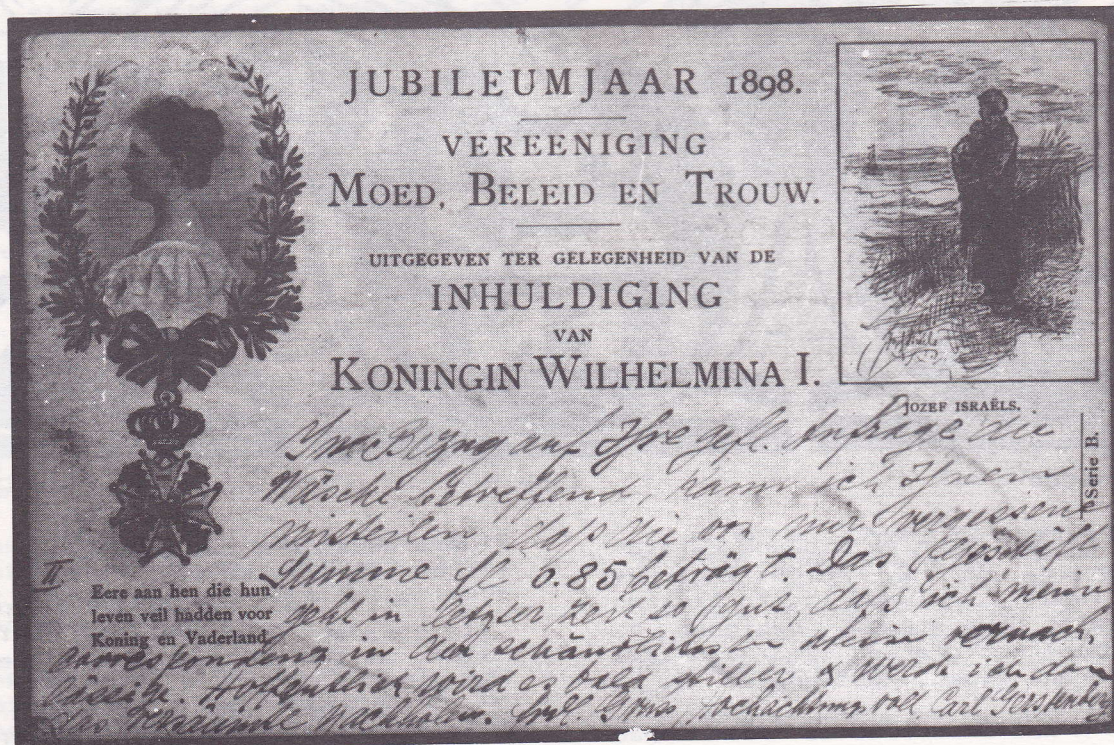 JUBILEUMJAAR 1898.
VEREENIGING
MOED, BELEID EN TROUW.
UITGEGEVEN TER GELEGENHEID VAN DE
INHULDIGING
VAN
KONINGIN WILHELMINA I.
JOZEF ISRAËLS.
Serie B.
II
Eere aan hen die hun
leven veil hadden voor
Koning en Vaderland.
Bezug auf Ihre gefl. Anfrage die
Wäsche betreffend, kann ich Ihnen
mitteilen daß die von mir vergessene
Summe fl 0.85 beträgt. Das Geschäft
geht in letzter Zeit so gut, daß ich meine
Correspondenz in der schändlichsten vernach,
lässige. Hoffentlich wird es bald stiller & werde ich dann
das Versäumte nachholen. Gruss, Hochachtungsvoll Carl Gerstenberg